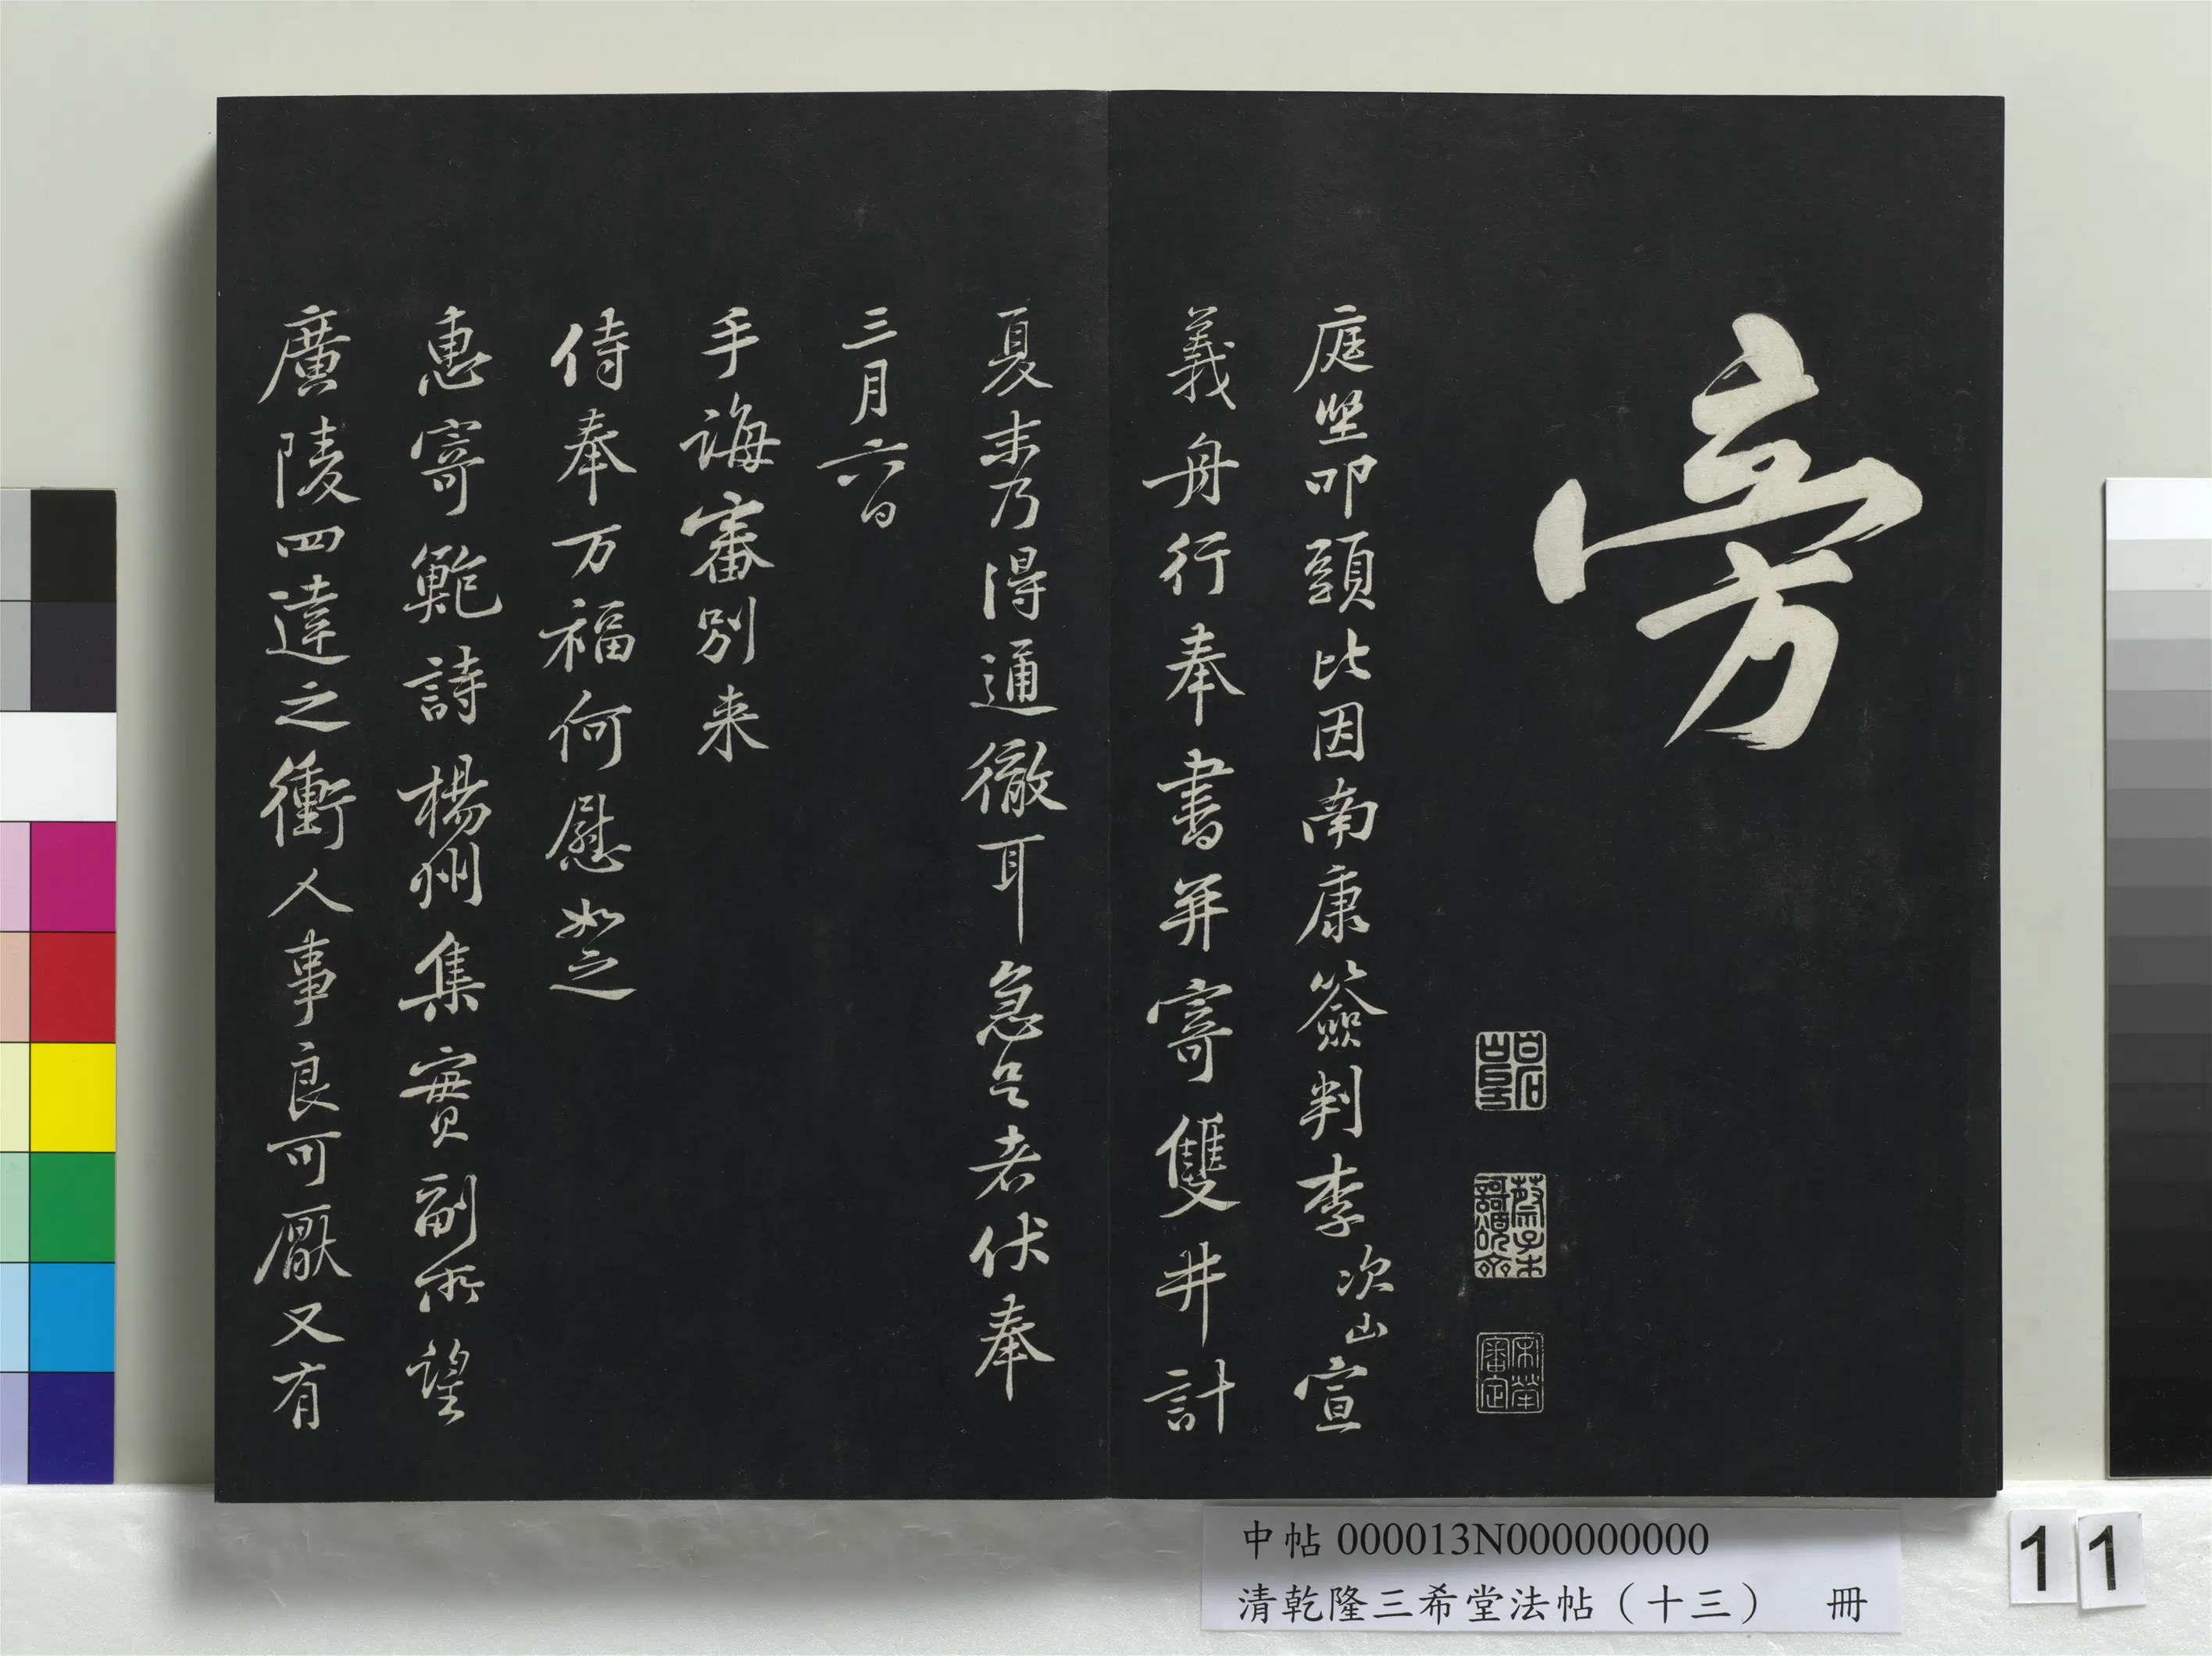 旁
庭堅叩頭比因南康簽判李次山宣
義舟行奉書并寄雙井計
夏末乃得通徹耳急足者伏奉
三月六日
手誨審別来
侍奉万福何慰如之
惠寄鮑詩楊州集實副所望
廣陵四達之衝人事良可厭又有
中帖 000013N000000000
清乾隆三希堂法帖（十三） 冊
11